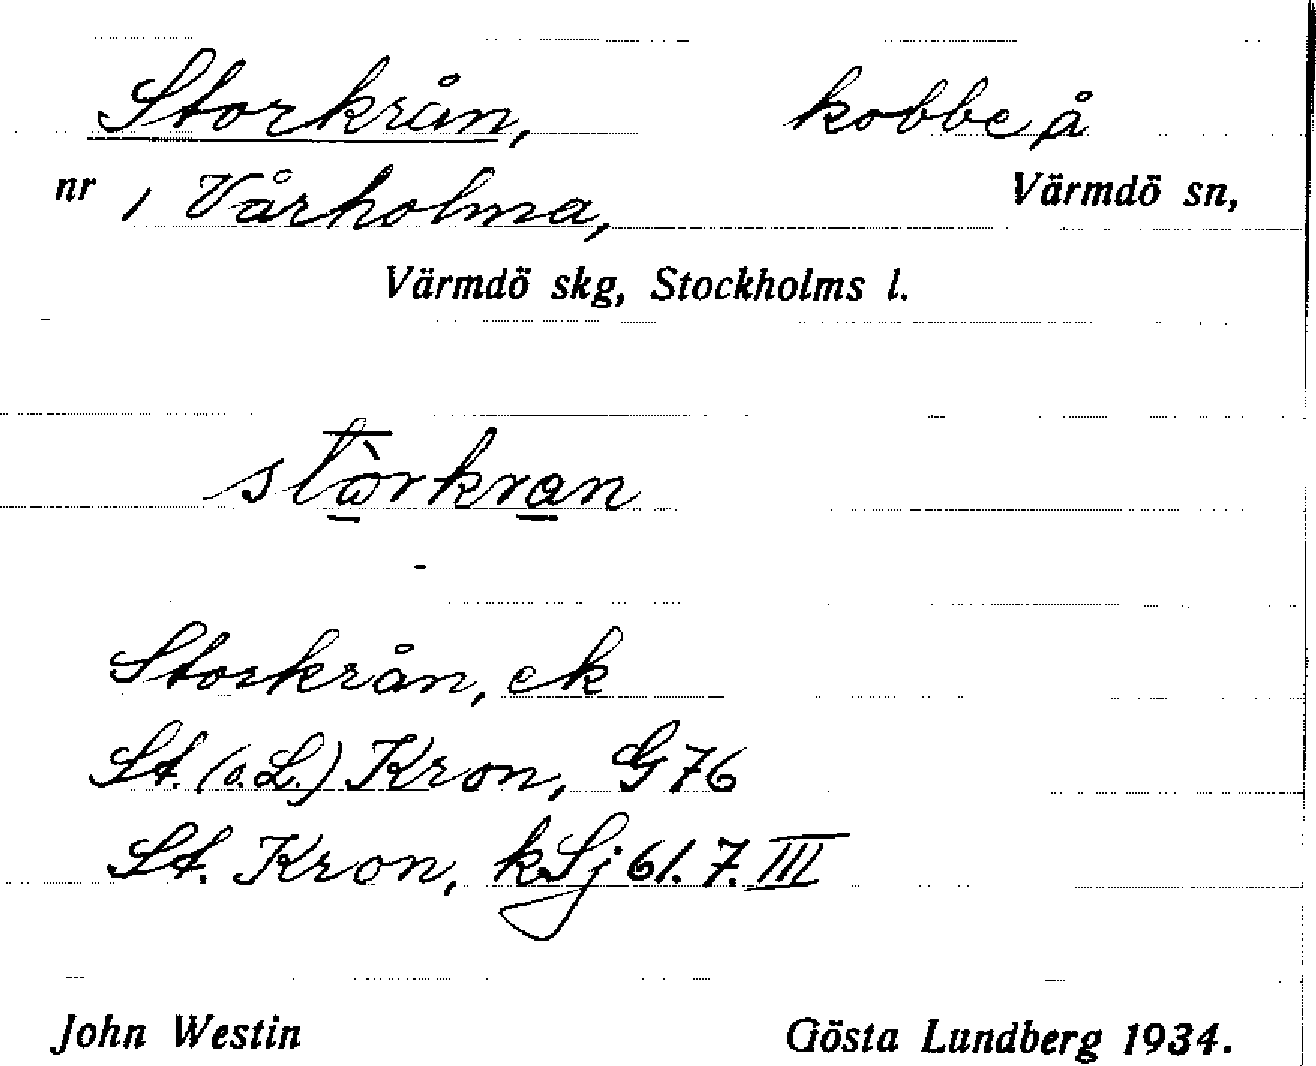 Storkrån, kobbe å
nr 1 Vårholma, Värmdö sn,
Värmdö skg, Stockholms l.
stòrkran
Storkrån, ek
St. (o. L.) Kron, G 76
St. Kron, kSj 61. 7. III
John Westin Gösta Lundberg 1934.